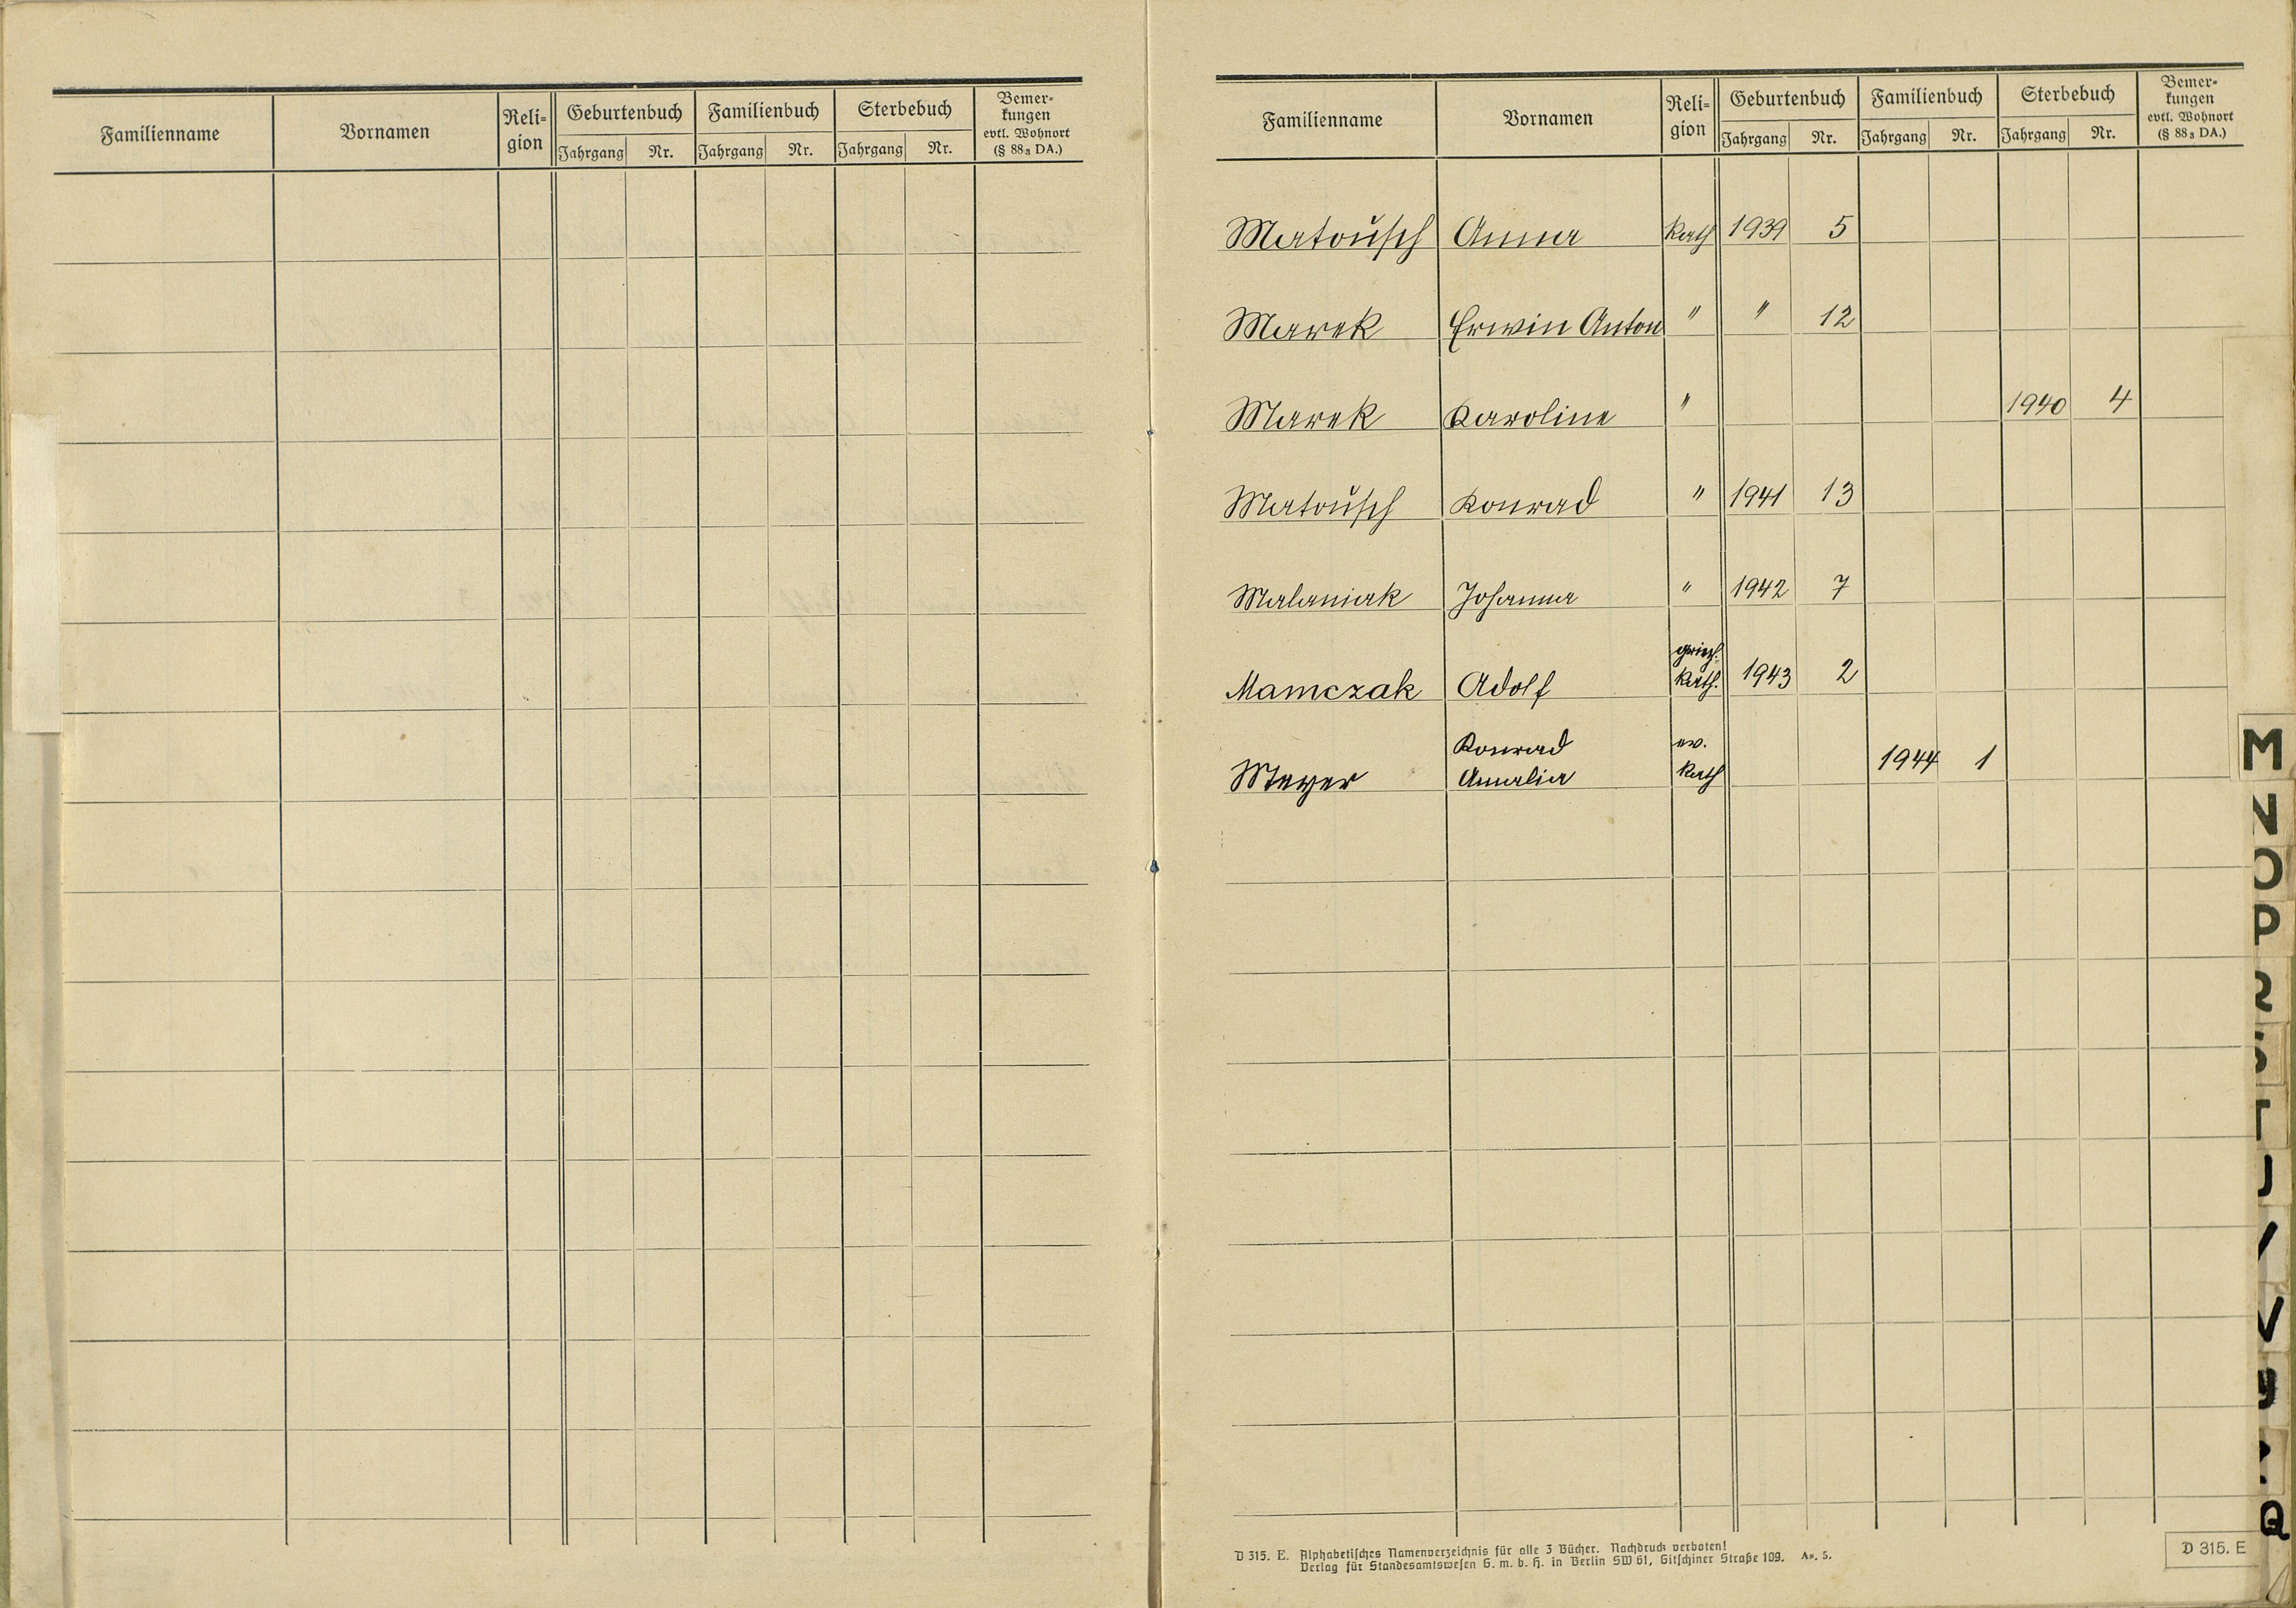 Familienname Vornamen Reli- Geburtenbuch Familienbuch Sterbebuch Bemer-
gion Jahrgang Nr. Jahrgang Nr. Jahrgang Nr. kungen
evtl. Wohnort
(§ 88a DA.)
Familienname Vornamen Reli- Geburtenbuch Familienbuch Sterbebuch Bemer-
gion Jahrgang Nr. Jahrgang Nr. Jahrgang Nr. kungen
evtl. Wohnort
(§ 88a DA.)
Matousch Anna Kath 1939 5
Marek Erwin Anton " " 12
Marek Karoline " 1940 4
Matousch Konrad " 1941 13
Malaniak Johanna " 1942 7
griech.
Mamczak Adolf Kath. 1943 2
Konrad ev.
Meyer Amalia Kath 1944 1
M
N
O
P
R
S
T
U
V
W
Q
D 315. E. Alphabetisches Namenverzeichnis für alle 3 Bücher. Nachdruck verboten!
Verlag für Standesamtswesen G. m. b. H. in Berlin SW 61, Gitschiner Straße 109. A*. 5.
D 315. E